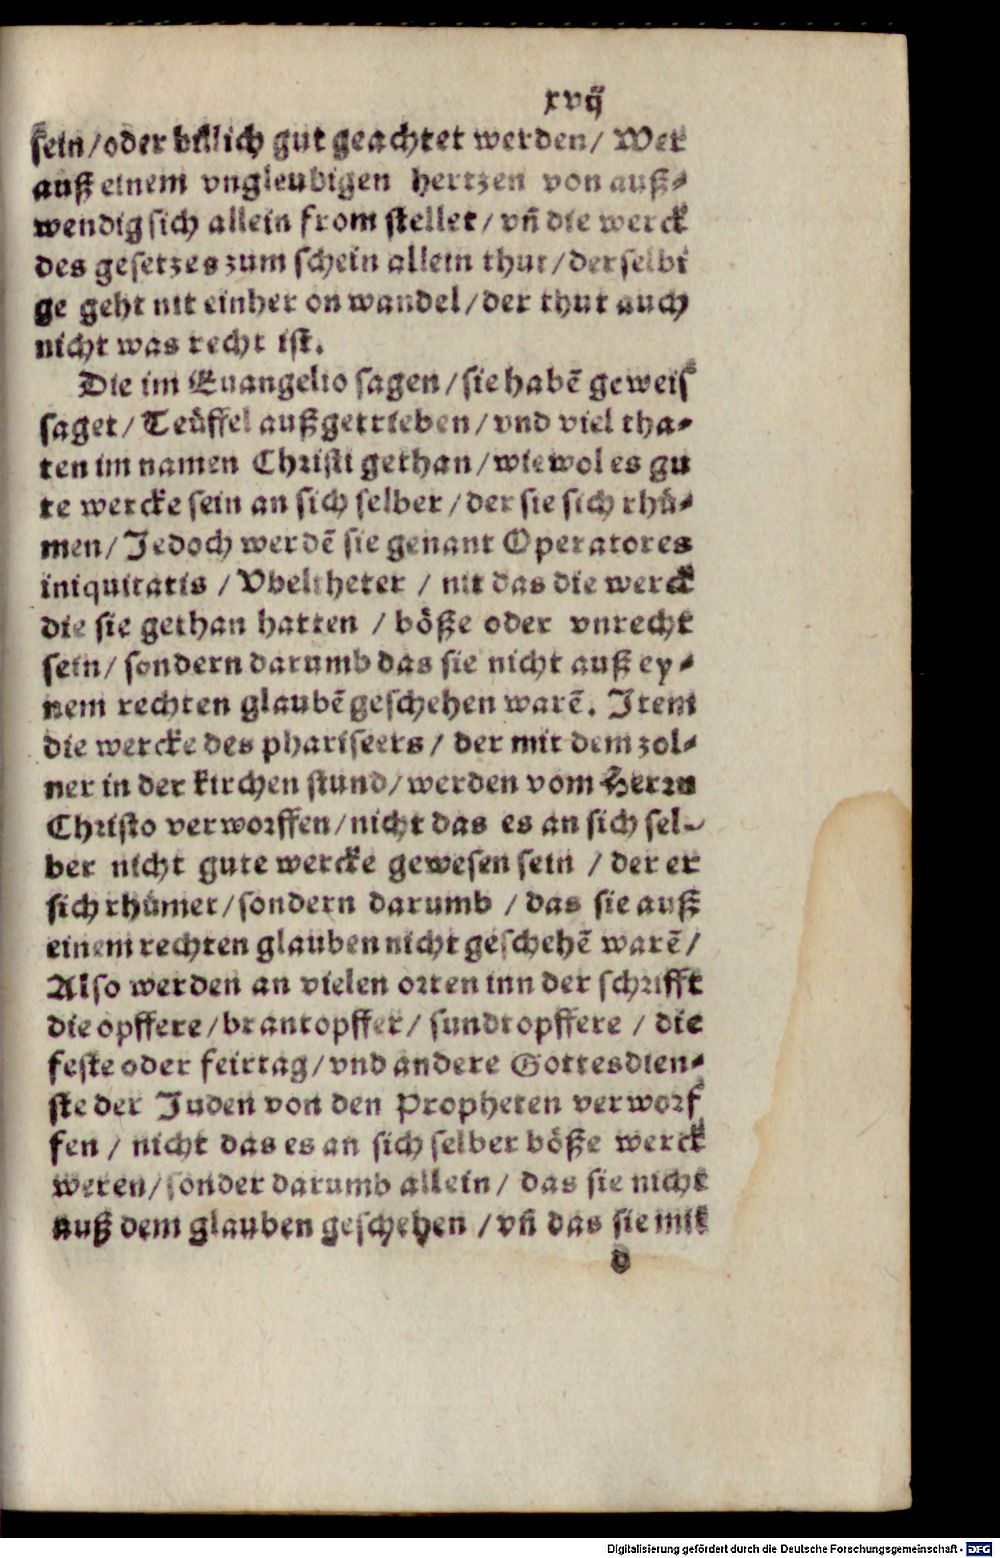 xvij
sein/oder billich gut geachtet werden/ Wer
auß einem vngleubigen hertzen von auß⸗
wendig sich allein from stellet/vñ die werck
des gesetzes zum schein allein thut/derselbi
ge geht nit einher on wandel/der thut auch
nicht was recht ist.
Die im Euangelio sagen/sie habē geweis
saget/Teüffel außgetrieben/vnd viel tha⸗
ten im namen Christi gethan/wiewol es gu
te wercke sein an sich selber/der sie sich rhů⸗
men/Jedoch werdē sie genant Operatores
iniquitatis /Vbeltheter / nit das die werck
die sie gethan hatten /bösse oder vnrecht
sein/sondern darumb das sie nicht auß ey⸗
nem rechten glaubē geschehen warē. Jtem
die wercke des phariseers/ der mit dem zol⸗
ner in der kirchen stund/werden vom Herrn
Christo verworffen/nicht das es an sich sel⸗
ber nicht gute wercke gewesen sein /der er
sich rhůmet/sondern darumb /das sie auß
einem rechten glauben nicht geschehē warē/
Also werden an vielen orten inn der schrifft
die opffere/brantopffer/ sundtopffere / die
feste oder feirtag/vnd andere Gottesdien⸗
ste der Juden von den Propheten verworf
fen / nicht das es an sich selber bösse werck
weren/sonder darumb allein/ das sie nicht
auß dem glauben geschehen /vñ das sie mit
d
Digitalisierung gefördert durch die Deutsche Forschungsgemeinschaft - DFG